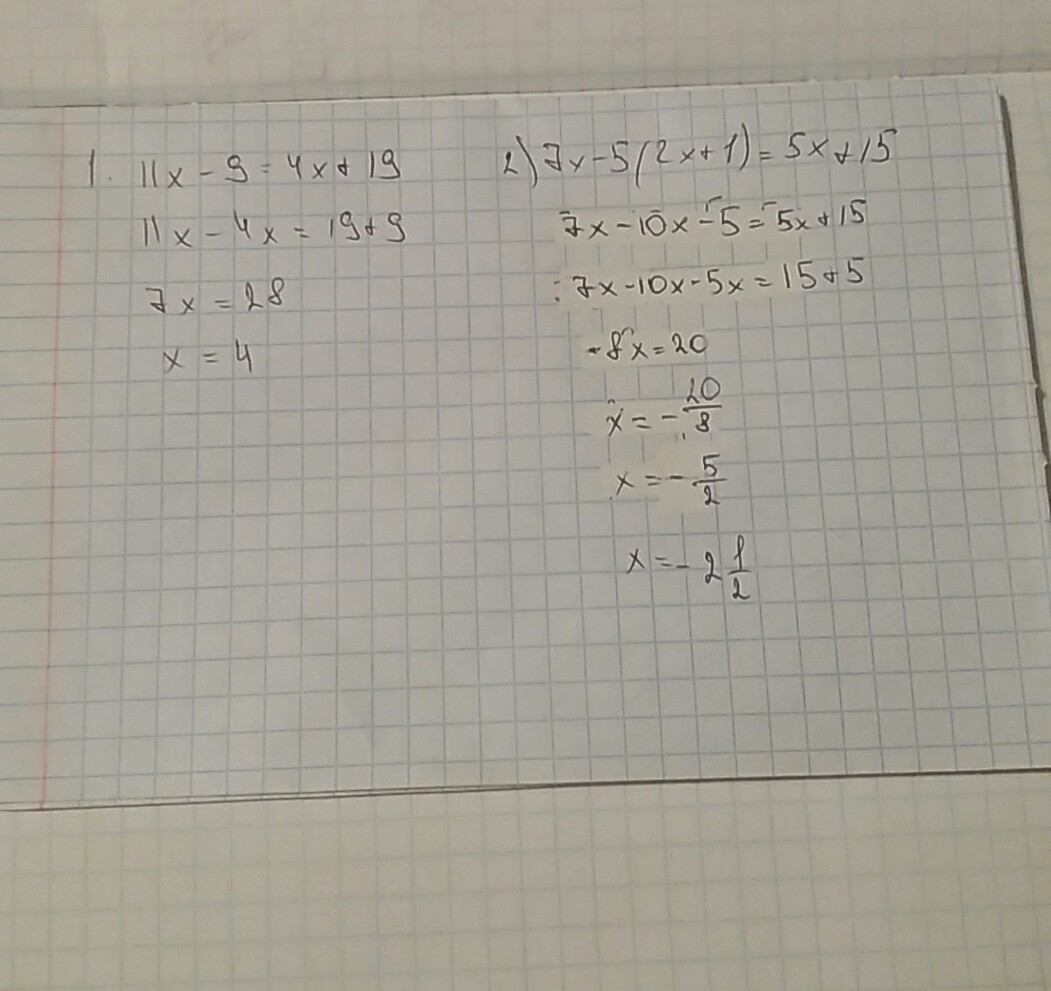 1. 11x - 9 = 4x + 19
11x - 4x = 19 + 9
7x = 28
x = 4
2) 7x - 5(2x + 1) = 5x + 15
7x - 10x - 5 = 5x + 15
7x - 10x - 5x = 15 + 5
-8x = 20
x = -20/8
x = -5/2
x = -2 1/2